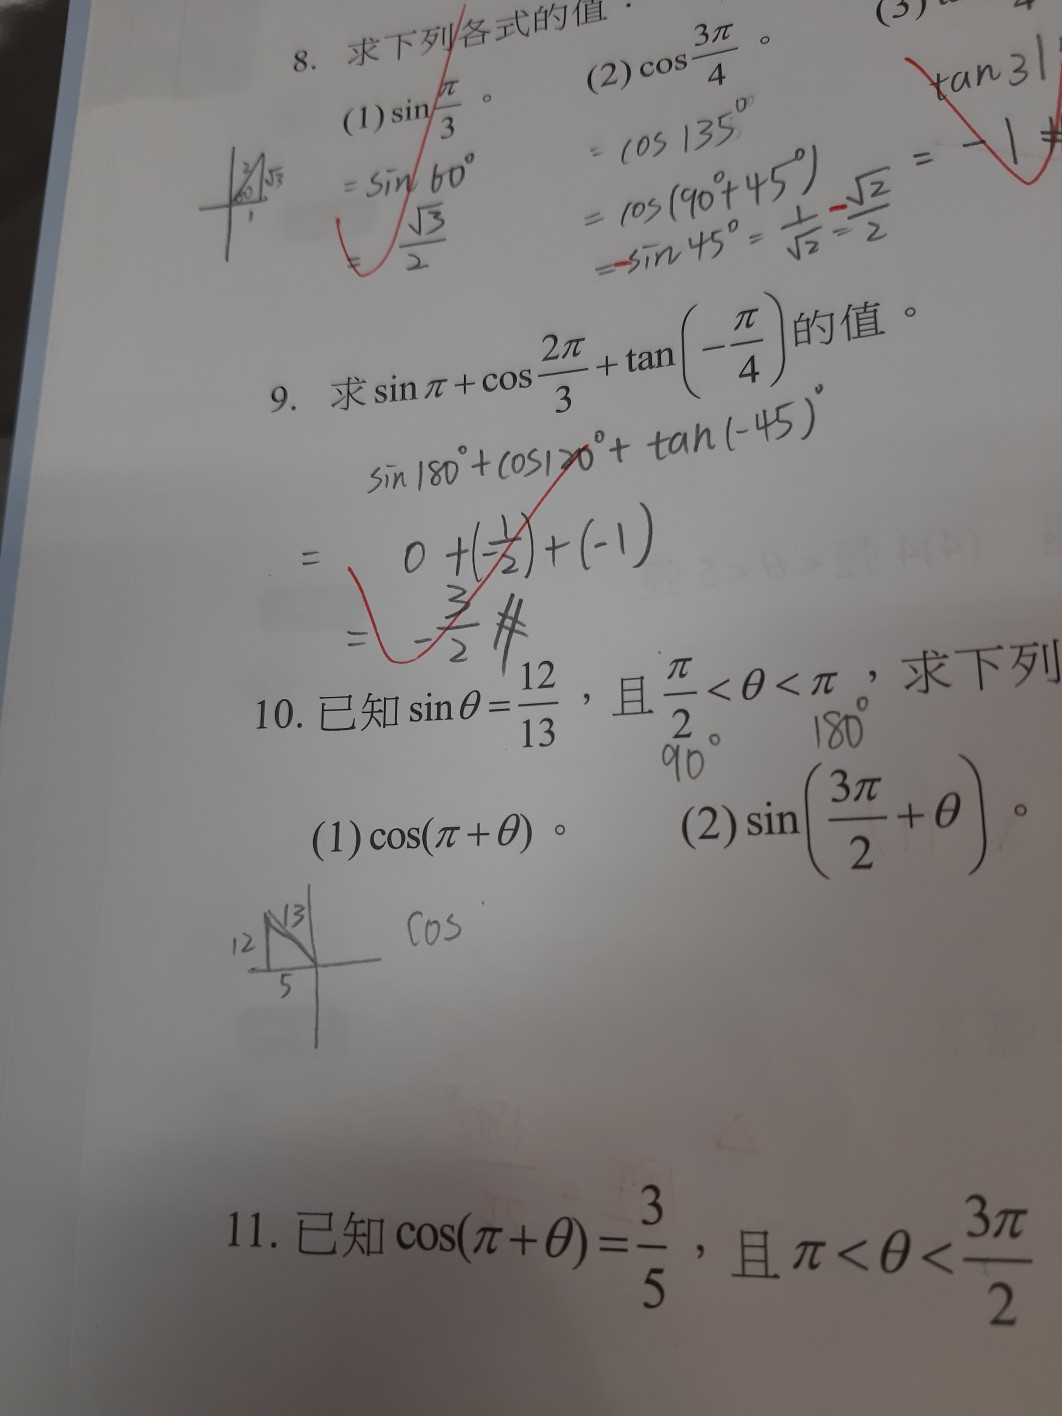 8. 求下列各式的值
(1) sin π/3 。 (2) cos 3π/4 。 (3)
= sin 60° = cos 135° tan 3
2 √3 60 1
= √3/2 = cos(90°+45°) = -1 #
= -sin 45° = 1/√2 = -√2/2
9. 求 sin π + cos 2π/3 + tan(-π/4) 的值。
sin 180° + cos120° + tan(-45)°
= 0 + (-1/2) + (-1)
= -3/2 #
10. 已知 sin θ = 12/13 ，且 π/2 < θ < π ，求下列
90° 180°
(1) cos(π+θ) 。 (2) sin(3π/2 + θ) 。
12 13 5 cos
11. 已知 cos(π+θ) = 3/5 ，且 π < θ < 3π/2